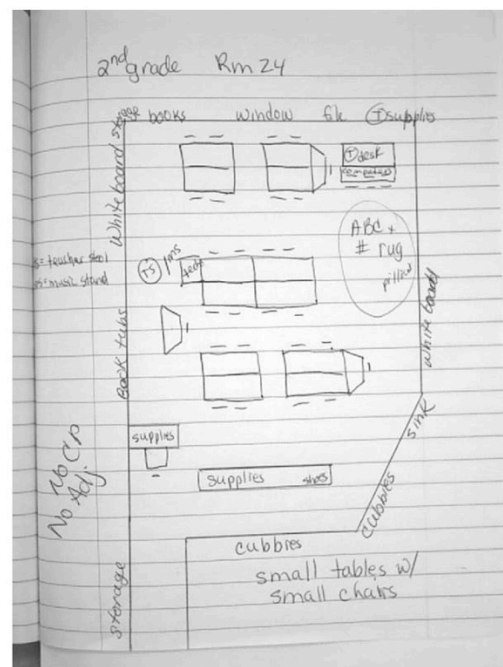 2nd grade Rm 24
storage books window file T supplies
White board
T desk
computer
ABC +
# rug
pillow
s = teacher stool
ms = music stand
TS ms tech
Book tubs
White board
supplies
No
No
Adj.
supplies shoes
sink
cubbies
cubbies
small tables w/
small chairs
storage